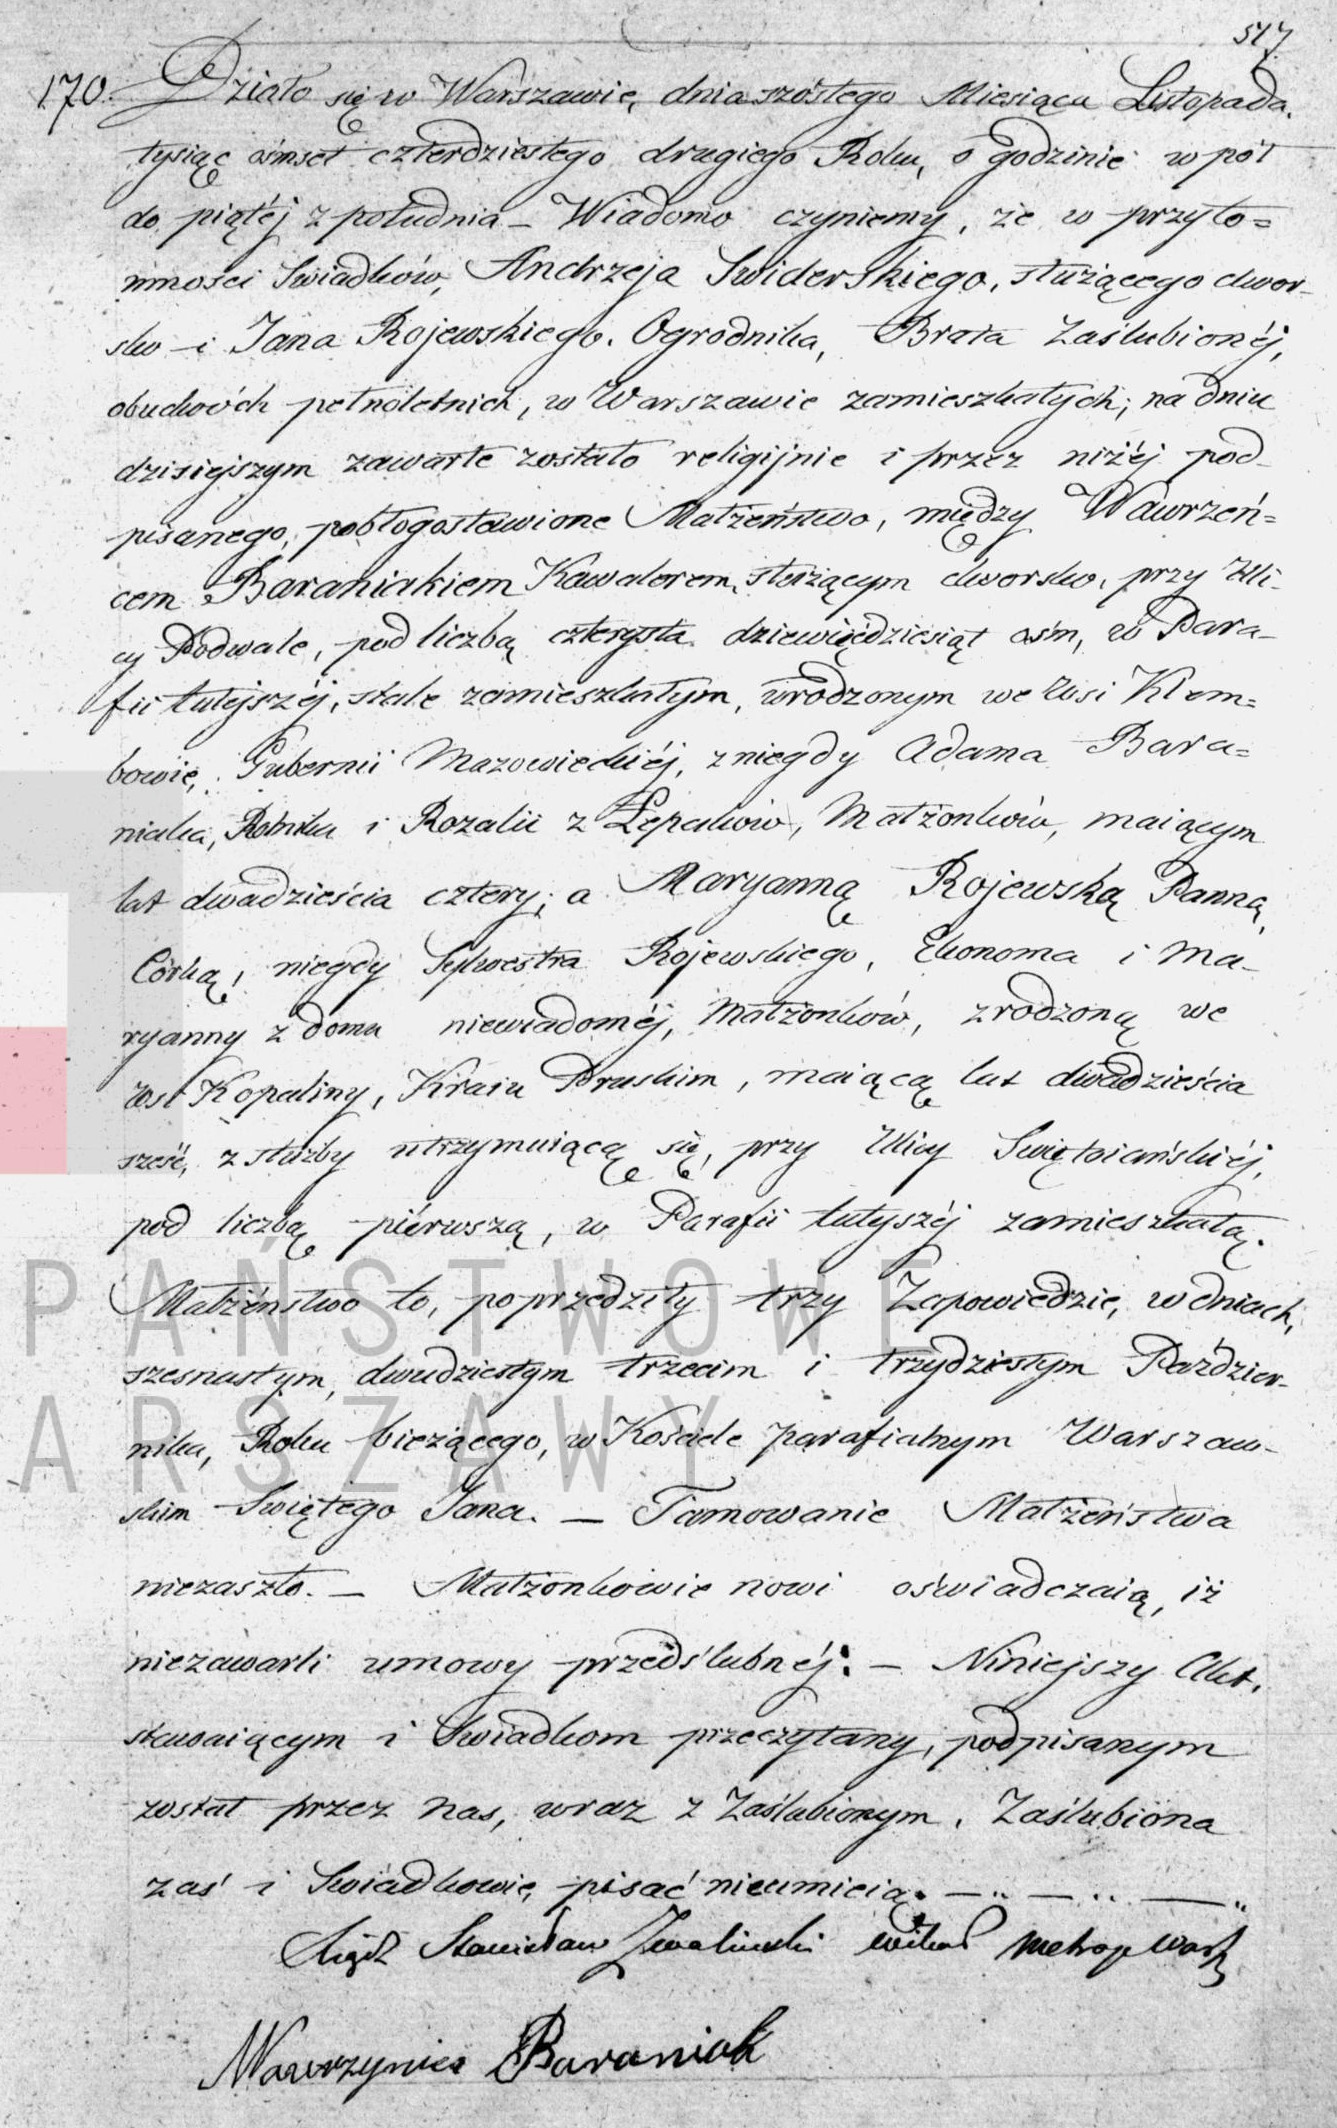 517
170. Działo się w Warszawie, dnia szóstego Miesiąca Listopada.
tysiąc ośmset czterdziestego drugiego Roku, o godzinie w pół
do piątéj z południa – Wiadomo czyniemy, że w przyto=
mności Swiadków, Andrzeja Swiderskiego, służącego dwor-
sko – i Jana Rojewskiego. Ogrodnika, Brata Zaślubionéj,
obudwóch pełnoletnich, w Warszawie zamieszkałych; na dniu
dzisiejszym zawarte zostało religijnie i przez niżéj pod-
pisanego, pobłogosławione Małżeństwo, między Wawrzeń=
cem Baraniakiem Kawalerem, służącym dworsko, przy Uli-
cy Podwale, pod liczbą czterysta dziewięćdziesiąt ośm, w Para-
fii tutejszéj, stale zamieszkałym, urodzonym we Wsi Klem=
bowie, Gubernii Mazowieckiéj, z niegdy Adama Bara=
niaka, Rolnika i Rozalii z Łępaków, Małżonków, maiącym
lat dwadzieścia cztery; a Maryanną Rojewską Panną,
Córką, niegdy Sylwestra Rojewskiego, Ekonoma i Ma-
ryanny z domu niewiadoméj, Małżonków, zrodzoną we
wsi Kopaliny, Kraiu Pruskim, maiącą lat dwadzieścia
sześć, z służby utrzymuiącą się, przy Ulicy Swiętoiańskiéj,
pod liczbą piérwszą, w Parafii tutyszéj zamieszkałą.
Małżeństwo to, poprzedziły trzy Zapowiedzie, w dniach,
szesnastym, dwudziestym trzecim i trzydziestym Paździer-
nika, Roku bieżącego, w Kościele parafialnym Warszaw-
skim Swiętego Jana. – Tamowanie Małżeństwa
niezaszło. – Małżonkowie nowi oświadczaią, iż
niezawarli umowy przedślubnéj: – Niniejszy Akt,
stawaiącym i Swiadkom przeczytany, podpisanym
został przez nas, wraz z Zaślubionym, Zaślubiona
zaś i Swiadkowie, pisać nieumieią. – .. – .. – ..
Xiądz Stanisław Zwoliński wikar Metrop Warsz
Wawrzyniec Baraniak
PAŃSTWOWE
ARSZAWY